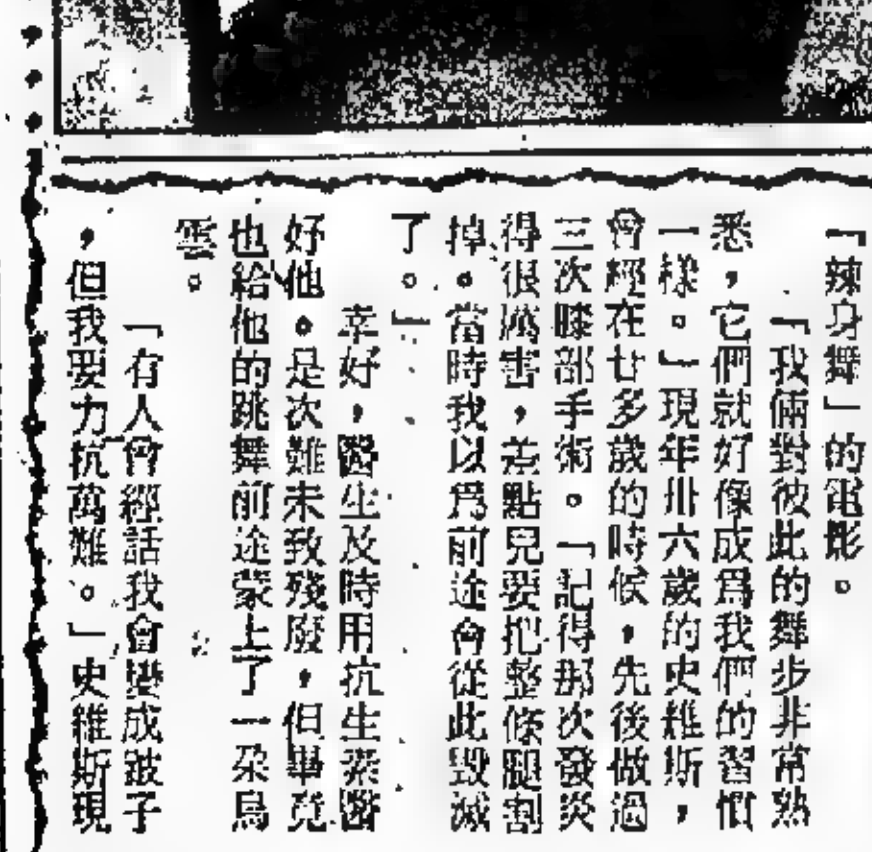 「辣身舞」的電影。
「我倆對彼此的舞步非常熟
悉，它們就好像成爲我們的習慣
一樣。」現年卅六歲的史維斯，
曾經在廿多歲的時候，先後做過
三次膝部手術。「記得那次發炎
得很厲害，差點兒要把整條腿割
掉。當時我以爲前途會從此毀滅
了。」
幸好，醫生及時用抗生素醫
好他。是次雖未致殘廢，但畢竟
也給他的跳舞前途蒙上了一朶烏
雲。
「有人曾經話我會變成跛子
，但我要力抗萬難。」史維斯現